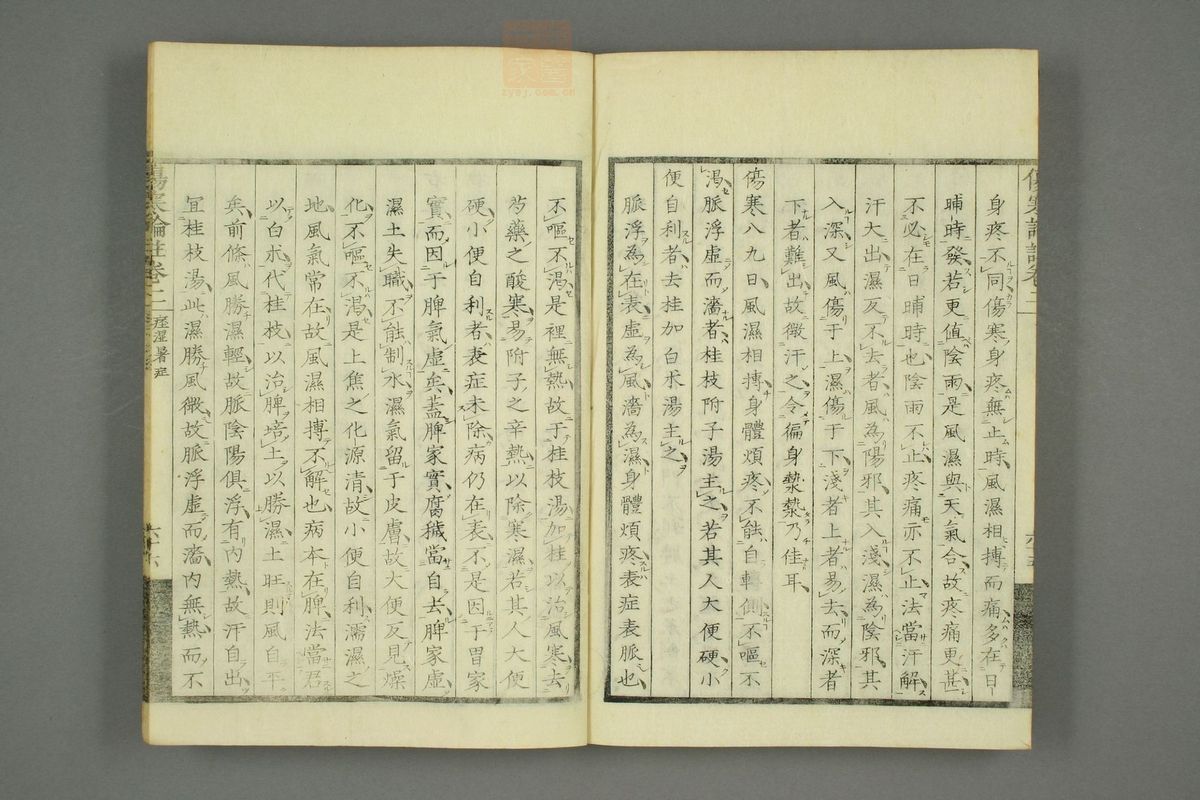 身疼不同傷寒身疼無止時風濕相摶而痛多在日
晡時發若更值陰雨是風濕與天氣合故疼痛更甚
不必在日晡時也陰雨不止疼痛亦不止法當汗解
汗大出濕反不去者風為陽邪其入淺濕為陰邪其
入深又風傷于上濕傷于下淺者上者易去而深者
下者難出故微汗之令徧身漐漐乃佳耳
傷寒八九日風濕相摶身體煩疼不能自轉側不嘔不
渴脈浮虛而濇者桂枝附子湯主之若其人大便硬小
便自利者去桂加白朮湯主之
脈浮為在表虛為風濇為濕身體煩疼表症表脈也
不嘔不渴是裡無熱故于桂枝湯加桂以治風寒去
芍藥之酸寒易附子之辛熱以除寒濕若其人大便
硬小便自利者表症未除病仍在表不是因于胃家
實而因于脾氣虛矣蓋脾家實腐穢當自去脾家虛
濕土失職不能制水濕氣留于皮膚故大便反見燥
化不嘔不渴是上焦之化源清故小便自利濡濕之
地風氣常在故風濕相摶不解也病本在脾法當君
以白朮代桂枝以治脾培土以勝濕土旺則風自平
矣前條風勝濕輕故脈陰陽俱浮有內熱故汗自出
宜桂枝湯此濕勝風微故脈浮虛而濇內無熱而不
傷寒論註卷二 痙濕暑症 六十六